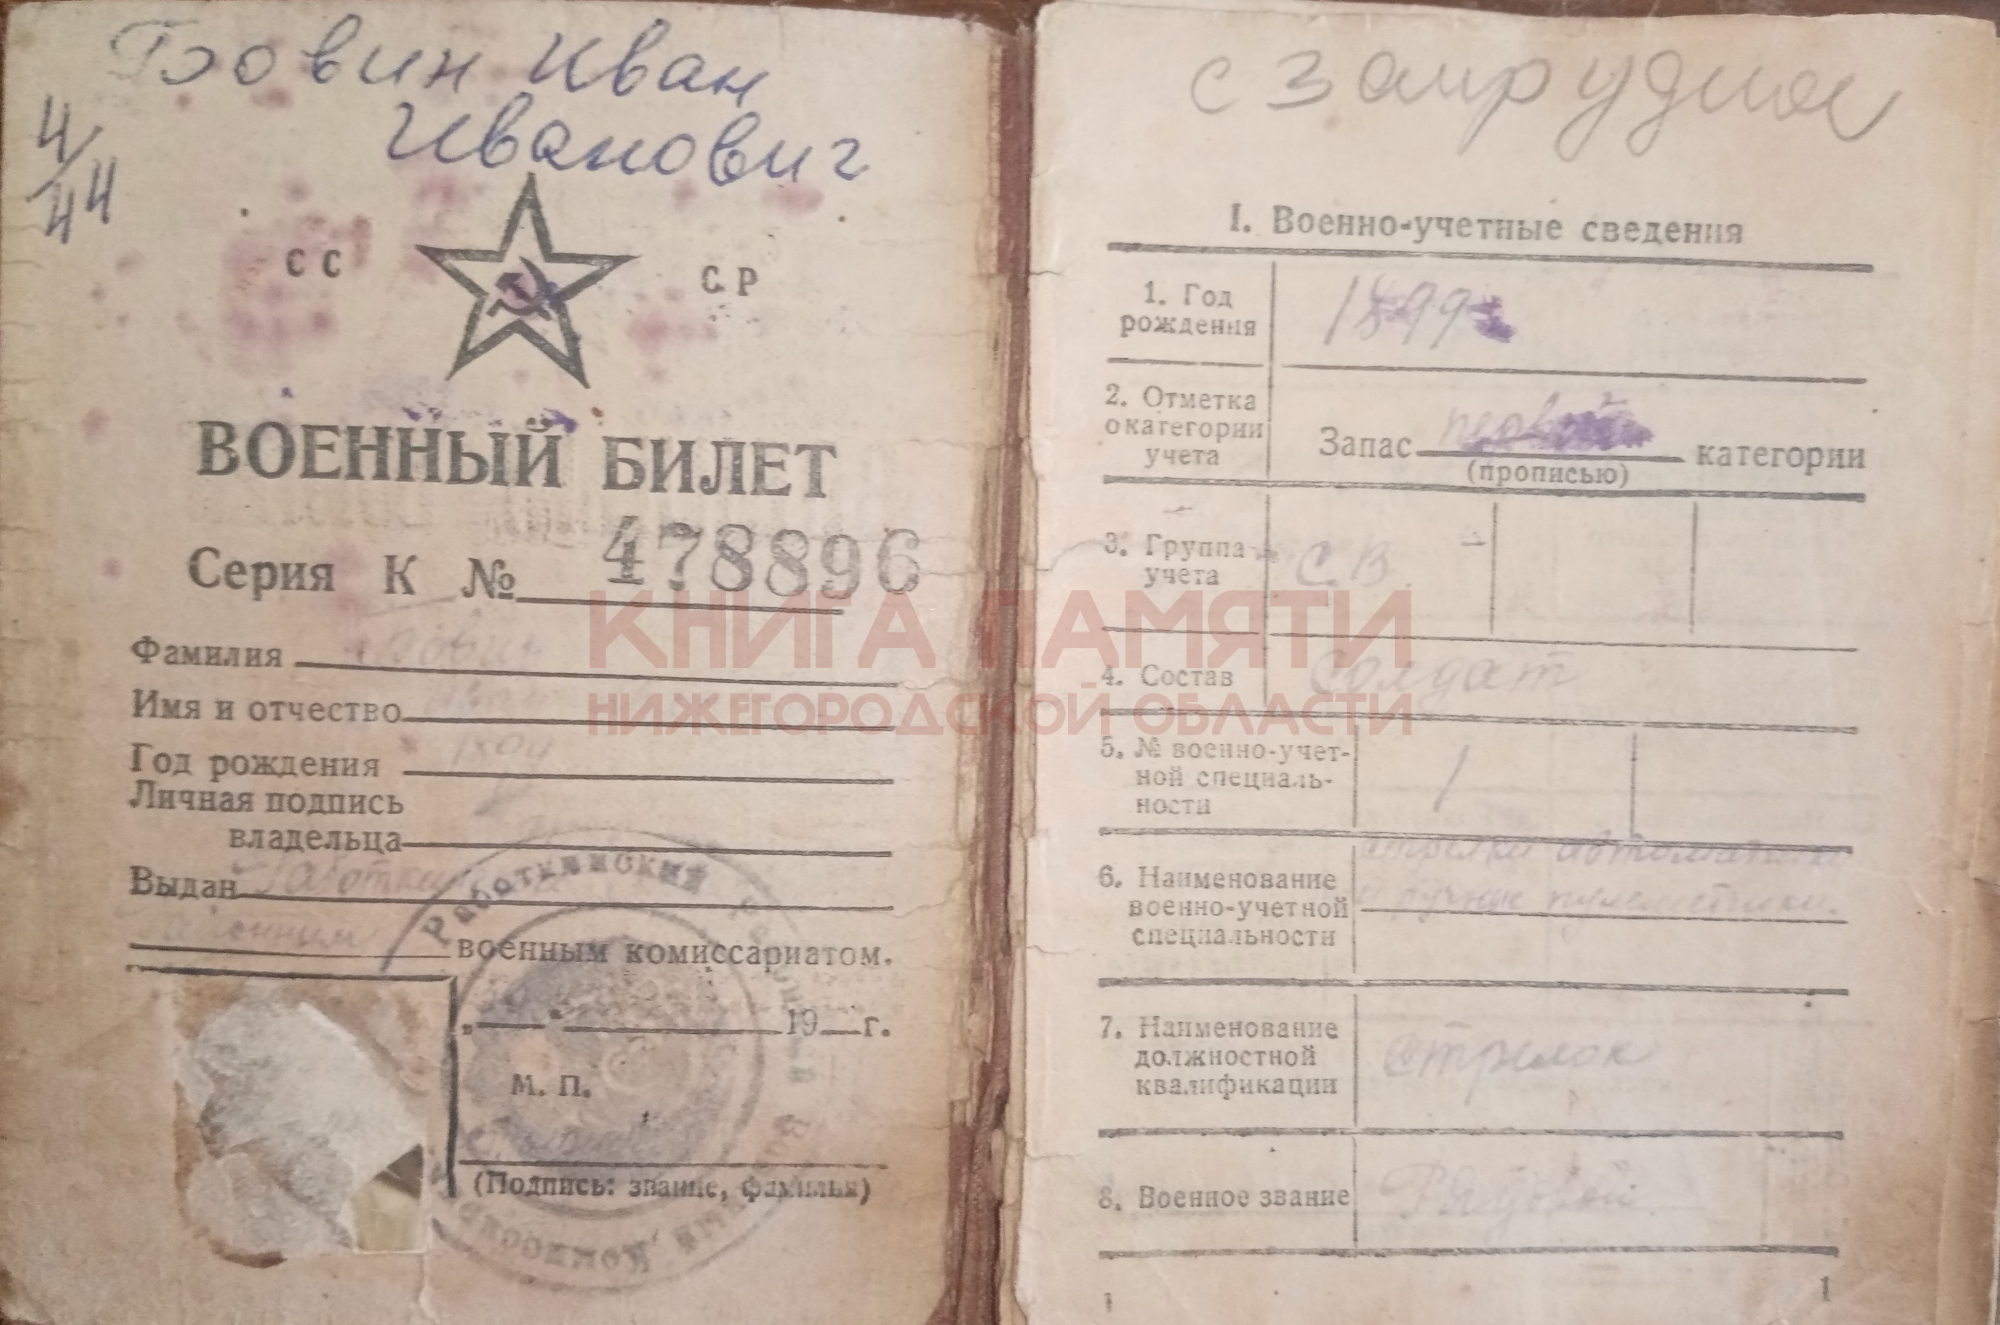 Иван
Иванович
4/44
СС СР
ВОЕННЫЙ БИЛЕТ
Серия К № 478896
Фамилия
Имя и отчество
Год рождения
Личная подпись
владельца
Выдан
военным комиссариатом.
„ “ 19 г.
М. П.
(Подпись: звание, фамилия)
Работкинский
КНИГА ПАМЯТИ
НИЖЕГОРОДСКОЙ ОБЛАСТИ
с
I. Военно-учетные сведения
1. Год
рождения
1899
2. Отметка
о категории
учета
Запас первой категории
(прописью)
3. Группа
учета
С.В.
4. Состав
Солдат
5. № военно-учет-
ной специаль-
ности
1
6. Наименование
военно-учетной
специальности
7. Наименование
должностной
квалификации
стрелок
8. Военное звание
Рядовой
1